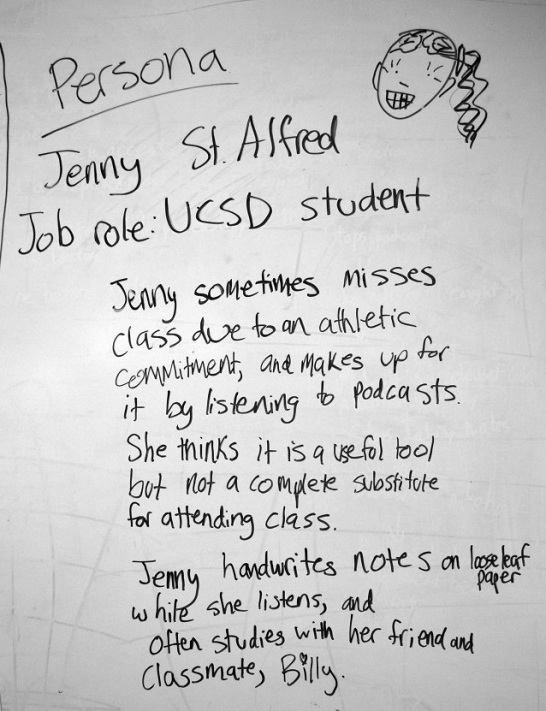 Persona
Jenny St. Alfred
Job role: UCSD student
Jenny sometimes misses
class due to an athletic
commitment, and makes up for
it by listening to podcasts.
She thinks it is a useful tool
but not a complete substitute
for attending class.
Jenny handwrites notes on looseleaf
paper
while she listens, and
often studies with her friend and
classmate, Billy.